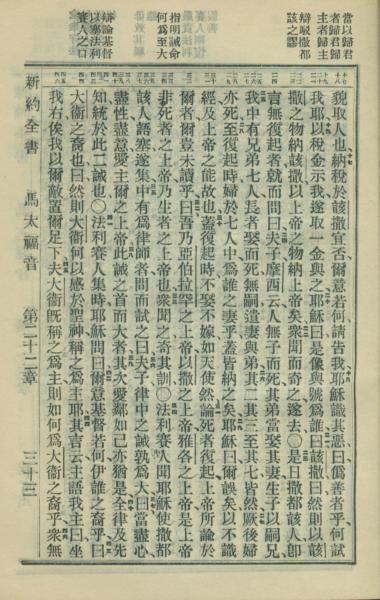 當以歸君
者歸君歸
主者歸主
辯駁撒都
該之謬
指明誡命
何爲至大
辯論基督
以塞法利
賽人之口
貌取人也納稅於該撒宜否爾意若何請告我耶穌識其惡曰僞善者乎何試
我耶以稅金示我遂取一金與之耶穌曰是像與號爲誰曰該撒曰然則以該
撒之物納該撒以上帝之物納上帝矣衆聞而奇之遂去〇是日撒都該人卽
言無復起者就而問曰夫子摩西云人無子而死其弟當娶其妻生子以嗣兄
我中有兄弟七人長者娶而死無嗣遺妻與弟其二其三至其七皆然厥後婦
亦死至復起時婦於七人中爲誰之妻乎蓋皆納之矣耶穌曰爾誤矣以不識
經及上帝之能故也蓋復起時不娶不嫁如天使然論死者復起上帝所諭於
爾者爾豈未讀乎曰吾乃亞伯拉罕之上帝以撒之上帝雅各之上帝是上帝
非死者之上帝乃生者之上帝也衆聞之奇其訓〇法利賽人聞耶穌使撒都
該人語塞遂集中有爲律師者問而試之曰夫子律中之誡孰爲大曰當盡心
盡性盡意愛主爾之上帝此誡之首而大者其次愛鄰如己亦猶是全律及先
知統於此二誡也〇法利賽人集時耶穌問曰爾意基督若何伊誰之裔乎曰
大衞之裔也曰然則大衞何以感於聖神稱之爲主耶其言云主語我主曰坐
我右俟我以爾敵置爾足下夫大衞旣稱之爲主則如何爲大衞之裔乎衆無
新約全書 馬太福音 第二十二章 三十三